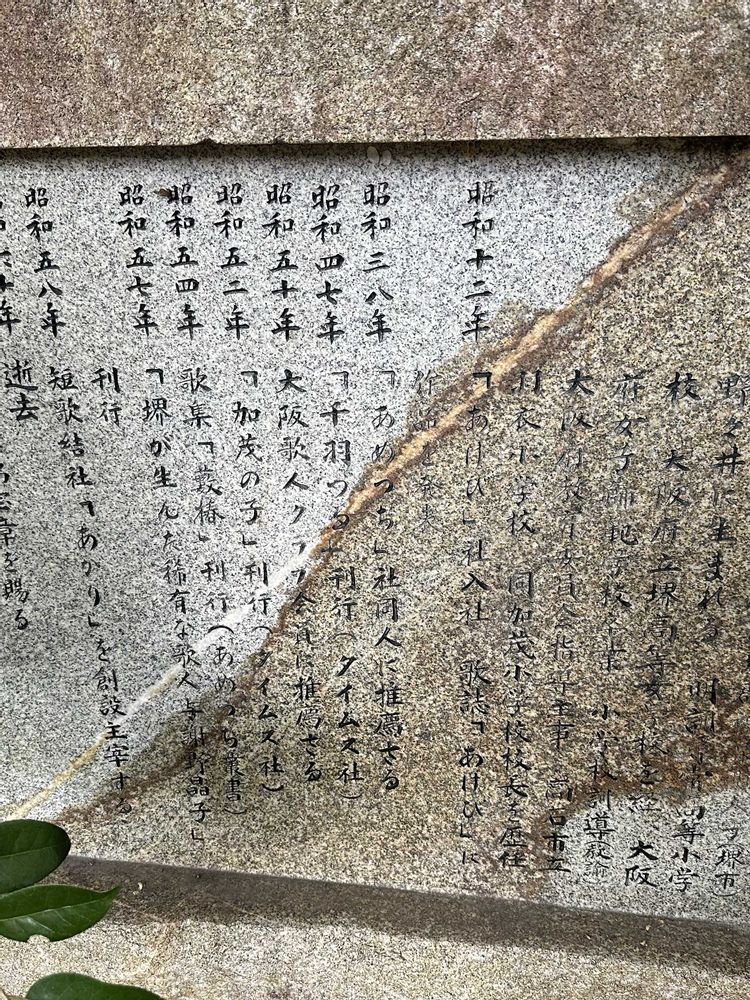 野々井に生まれる
校 大阪府立堺高等女学校を経 大阪
府女子師範学校卒業 小学校訓導
大阪府教育委員会指導主事
羽衣小学校 同加茂小学校校長を歴任
昭和十二年 「あけび」社入社 歌誌「あけび」に
作品を発表
昭和三八年 「あめつち」社同人に推薦さる
昭和四七年 「千羽つる」刊行(タイムス社)
昭和五十年 大阪歌人クラブ会員に推薦さる
昭和五二年 「加茂の子」刊行(タイムス社)
昭和五四年 歌集「藪椿」刊行(あめつち叢書)
昭和五七年 「堺が生んだ稀有な歌人与謝野晶子」
刊行
昭和五八年 短歌結社「あかり」を創設主宰する
逝去
章を賜る